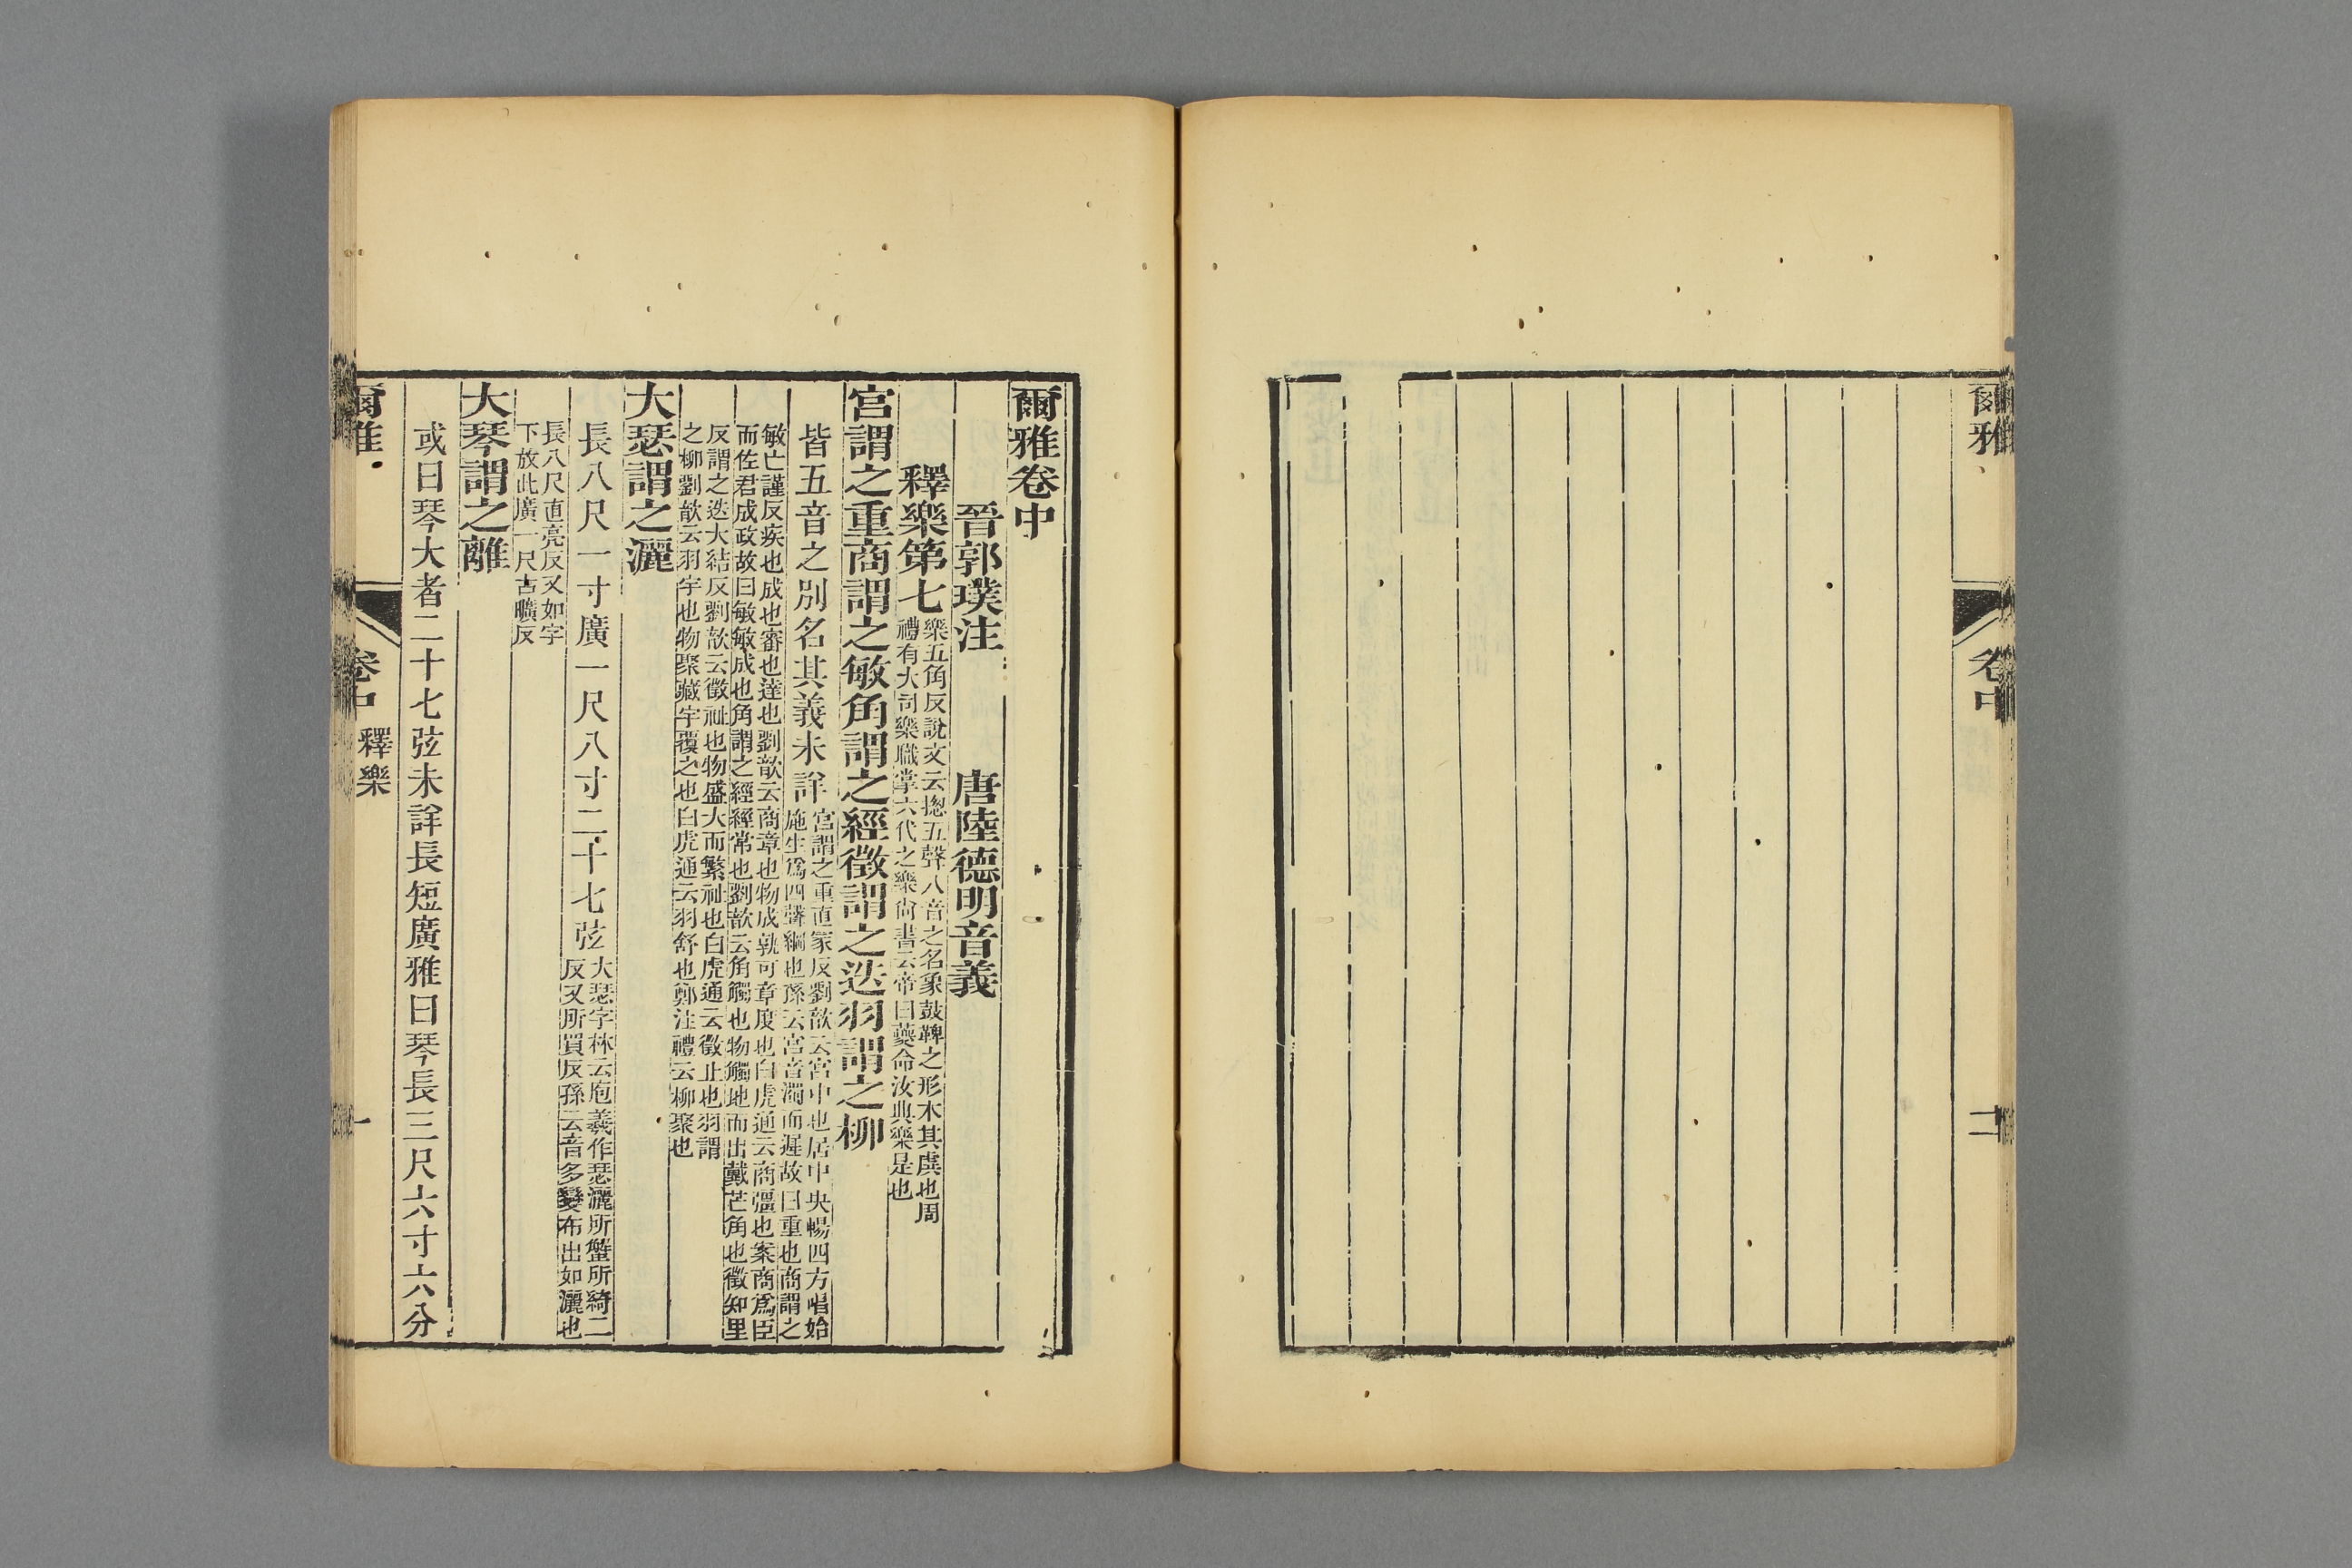 爾雅
卷中
十二
爾雅卷中
晉郭璞注 唐陸德明音義
釋樂第七
樂五角反說文云揔五聲八音之名象鼓鞞之形木其虡也周
禮有大司樂職掌六代之樂尚書云帝曰夔命汝典樂是也
宮謂之重商謂之敏角謂之經徵謂之迭羽謂之柳
皆五音之別名其義未詳
宮謂之重直冢反劉歆云宮中也居中央暢四方唱始
施生爲四聲綱也孫云宮音濁而遲故曰重也商謂之
敏亡謹反疾也成也審也達也劉歆云商章也物成孰可章度也白虎通云商彊也案商爲臣
而佐君成政故曰敏敏成也角謂之經經常也劉歆云角觸也物觸地而出戴芒角也徵知里
反謂之迭大結反劉歆云徵祉也物盛大而繁祉也白虎通云徵止也羽謂
之柳劉歆云羽宇也物聚藏宇覆之也白虎通云羽舒也鄭注禮云柳聚也
大瑟謂之灑
長八尺一寸廣一尺八寸二十七弦
大瑟字林云庖羲作瑟灑所蟹所綺二
反又所買反孫云音多變布出如灑也
長八尺直亮反又如字
下放此廣一尺古曠反
大琴謂之離
或曰琴大者二十七弦未詳長短廣雅曰琴長三尺六寸六分
爾雅
卷中
釋樂
一